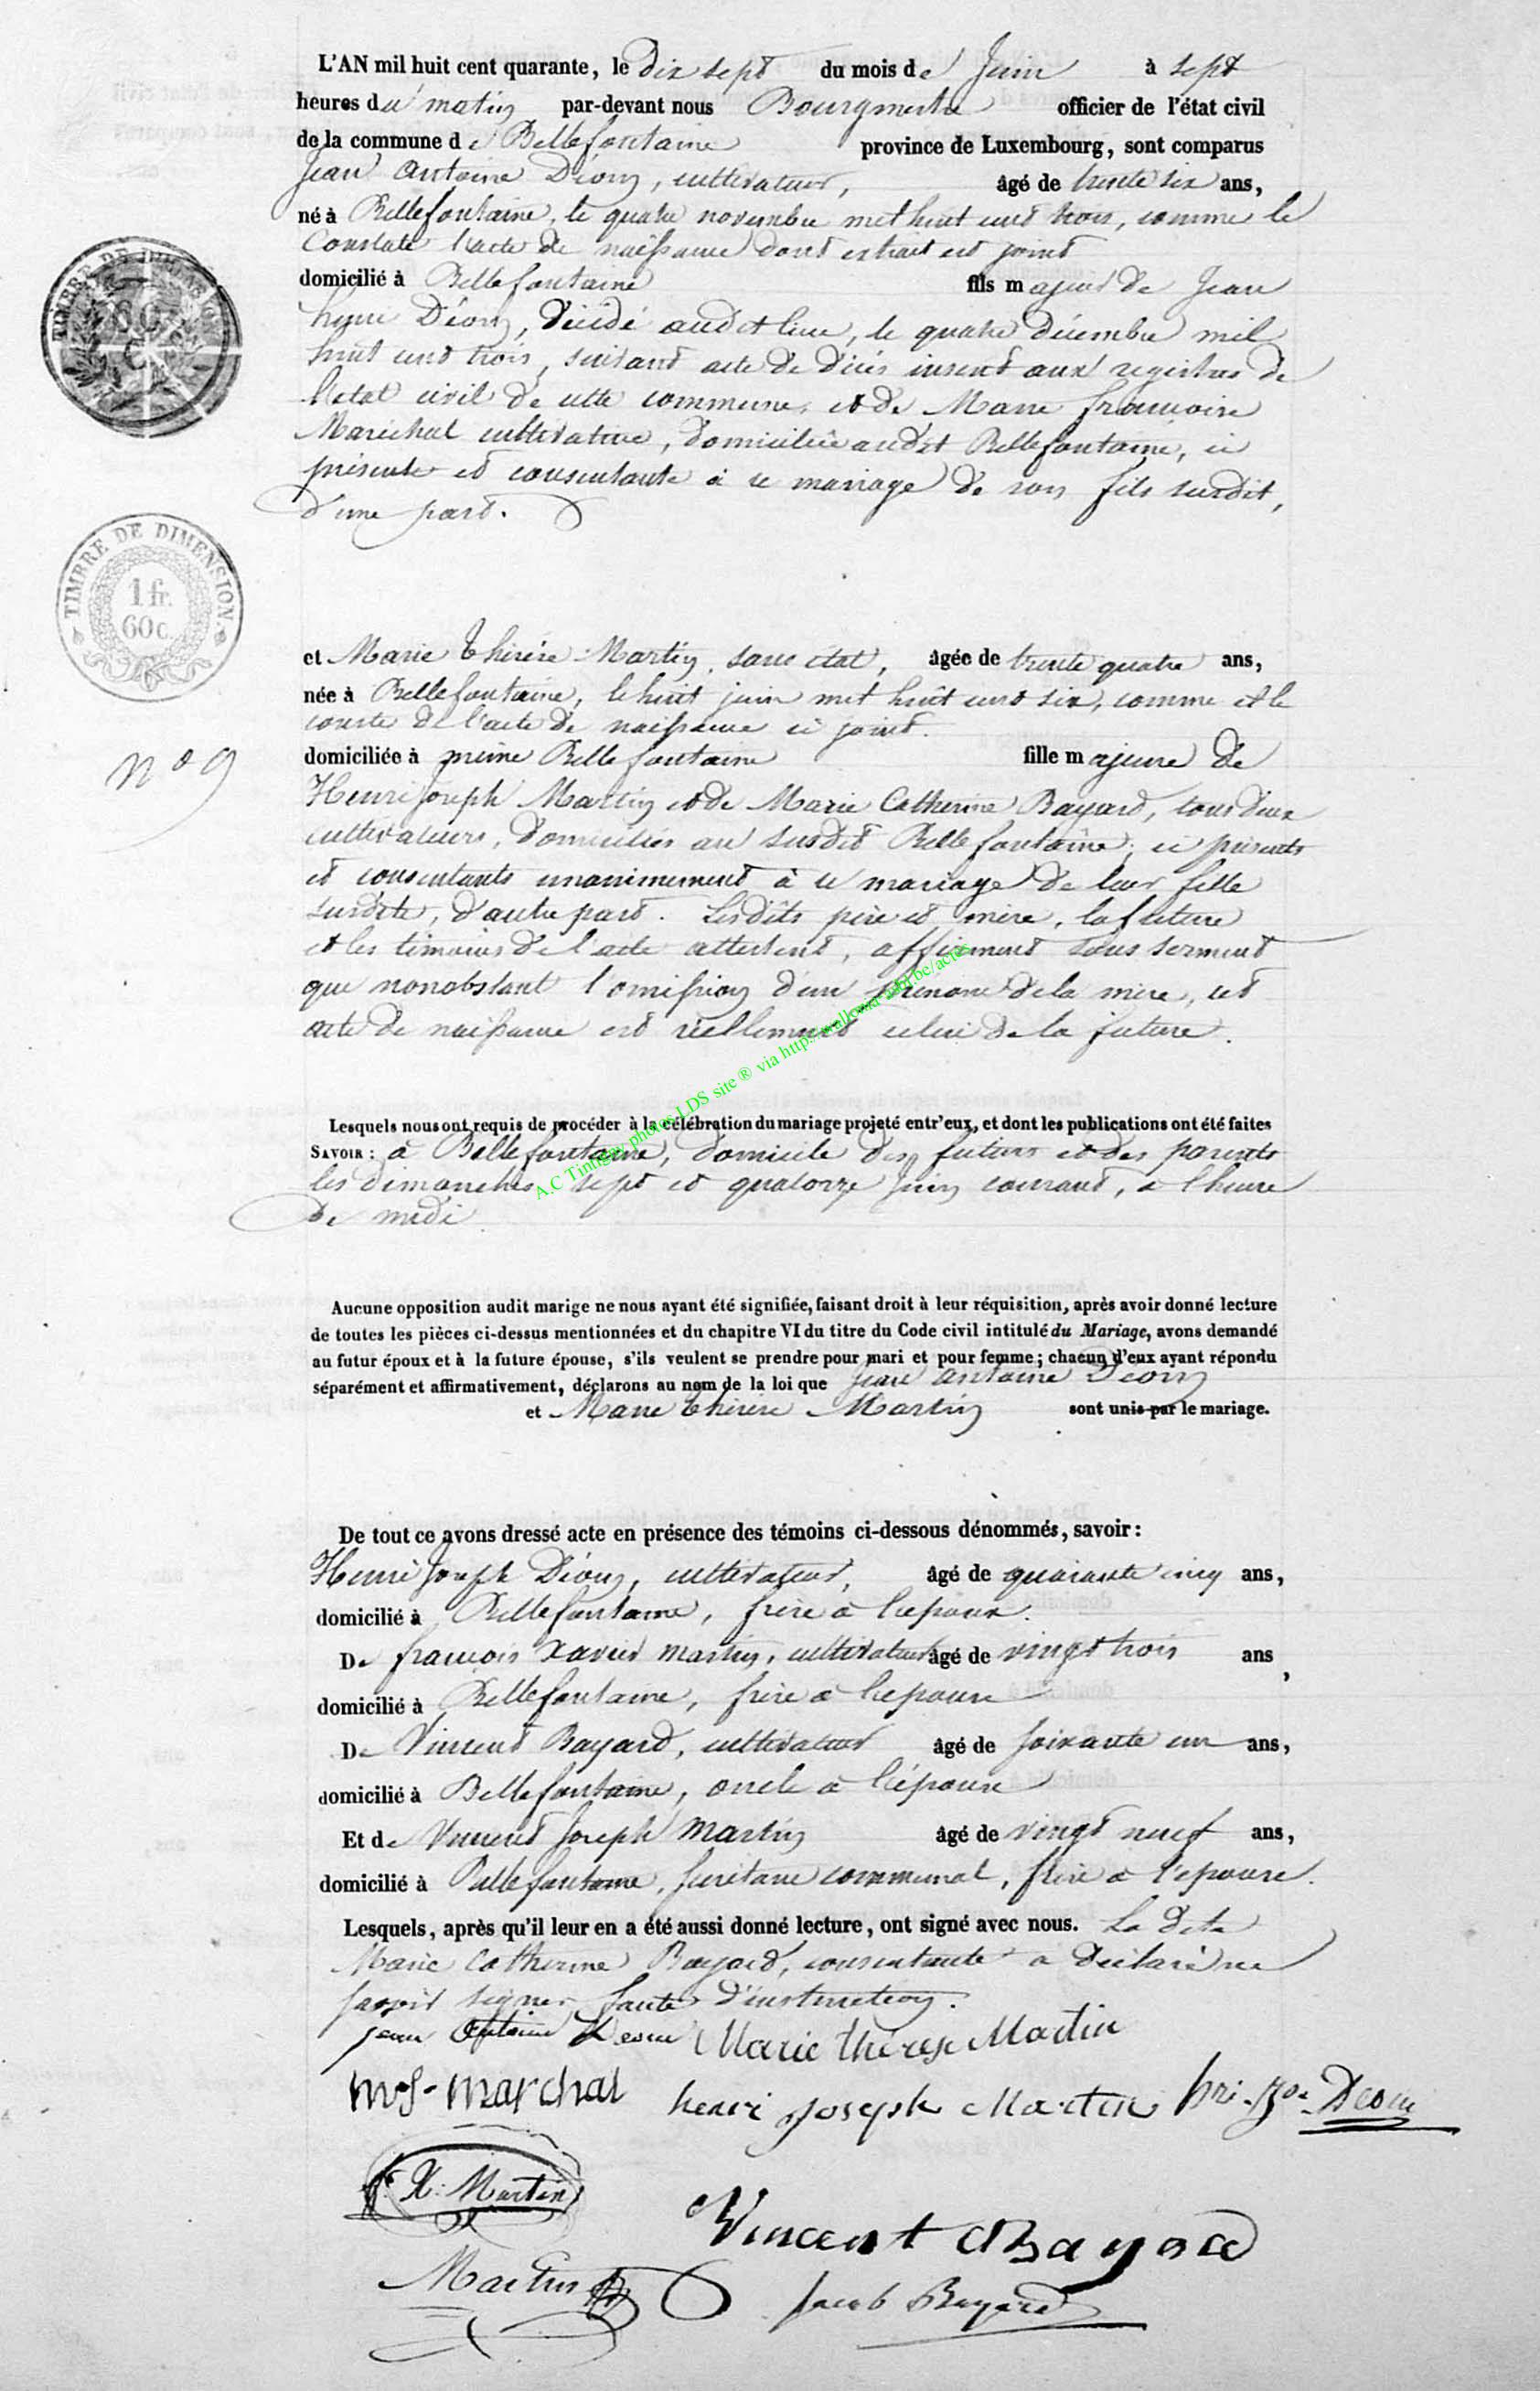 L'AN mil huit cent quarante, le dix sept du mois de Juin à sept
heures du matin par-devant nous Bourgmestre officier de l'état civil
de la commune de Bellefontaine province de Luxembourg, sont comparus
Jean Antoine Déom, cultivateur, âgé de trente six ans,
né à Bellefontaine, le quatre novembre mil huit cent trois, comme le
Constate l'acte de naissance dont extrait est joint
domicilié à Bellefontaine fils majeur de Jean
henri Déom, décédé audit lieu, le quatre décembre mil
huit cent trois, suivant acte de décès inséré aux registres de
l'état civil de cette commune, et de Marie françoise
Maréchal cultivatrice, domiciliée audit Bellefontaine, ici
présente et consentante à ce mariage de son fils susdit,
d'une part.
TIMBRE DE DIMENSION.
1 fr.
60 c.
et Marie Thérèse Martin, sans état, âgée de trente quatre ans,
née à Bellefontaine, le huit juin mil huit cent six, comme il le
conste de l'acte de naissance ci joint.
domiciliée à même Bellefontaine fille majeure de
n° 9
Henri Joseph Martin et de Marie Catherine Bayard, tous deux
cultivateurs, domiciliés au susdit Bellefontaine, ici présents
et consentants unanimement à ce mariage de leur fille
susdite, d'autre part. Lesdits père et mère, la future
et les témoins de l'acte attestent, affirment sous serment
que nonobstant l'omission d'un prénom de la mère, cet
acte de naissance est réellement celui de la future.
A.C Tintigny photos LDS site ® via http://wallonia-asbl.be/actes
Lesquels nous ont requis de procéder à la célébration du mariage projeté entr'eux, et dont les publications ont été faites
SAVOIR : à Bellefontaine, domicile des futurs et des parents
les dimanches sept et quatorze juin courant, à l'heure
de midi
Aucune opposition audit marige ne nous ayant été signifiée, faisant droit à leur réquisition, après avoir donné lecture
de toutes les pièces ci-dessus mentionnées et du chapitre VI du titre du Code civil intitulé du Mariage, avons demandé
au futur époux et à la future épouse, s'ils veulent se prendre pour mari et pour femme ; chacun d'eux ayant répondu
séparément et affirmativement, déclarons au nom de la loi que Jean Antoine Déom
et Marie Thérèse Martin sont unis par le mariage.
De tout ce avons dressé acte en présence des témoins ci-dessous dénommés, savoir :
Henri Joseph Déom, cultivateur, âgé de quarante cinq ans,
domicilié à Bellefontaine, frère à l'époux.
De françois Xavier Martin, cultivateur âgé de vingt trois ans,
domicilié à Bellefontaine, frère à l'épouse
De Vincent Bayard, cultivateur âgé de soixante un ans,
domicilié à Bellefontaine, oncle à l'épouse
Et de Vincent Joseph Martin âgé de vingt neuf ans,
domicilié à Bellefontaine, secrétaire communal, frère à l'épouse.
Lesquels, après qu'il leur en a été aussi donné lecture, ont signé avec nous. La dite
Marie Catherine Bayard, consentante a déclaré ne
savoir signer faute d'instruction.
jean Antoine Deom Marie thérese Martin
m-f-marchal henri Joseph Martin hri. Jo. Deom
f. X. Martin
Vincent Bayard
Martin
Jacob Bayard